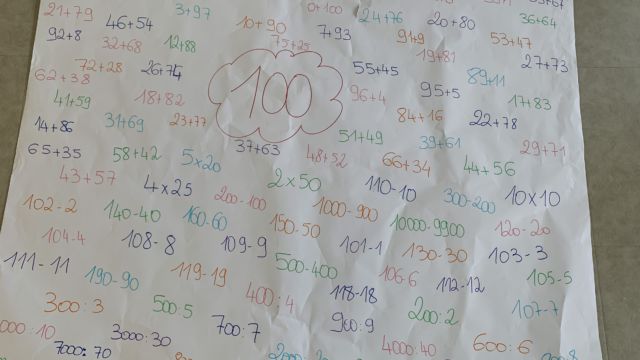 21+79 46+54 3+97 10+90 0+100 24+76 20+80 36+64
92+8 32+68 12+88 75+25 7+93 91+9 19+81 53+47 27+73
62+38 72+28 26+74 100 55+45 96+4 95+5 89+11 17+83
41+59 18+82 84+16 22+78
14+86 31+69 23+77 37+63 51+49 39+61 29+71
65+35 58+42 5x20 48+52 66+34 44+56
43+57 4x25 200-100 2x50 110-10 300-200 10x10
102-2 140-40 160-60 150-50 1000-900 10000-9900 120-20
104-4 108-8 109-9 101-1 130-30 103-3
111-11 190-90 119-19 500-400 118-18 106-6 112-12 105-5
300:3 500:5 400:4 900:9 200:2 107-7
000:10 3000:30 700:7 4000:40 600:6
7000:70